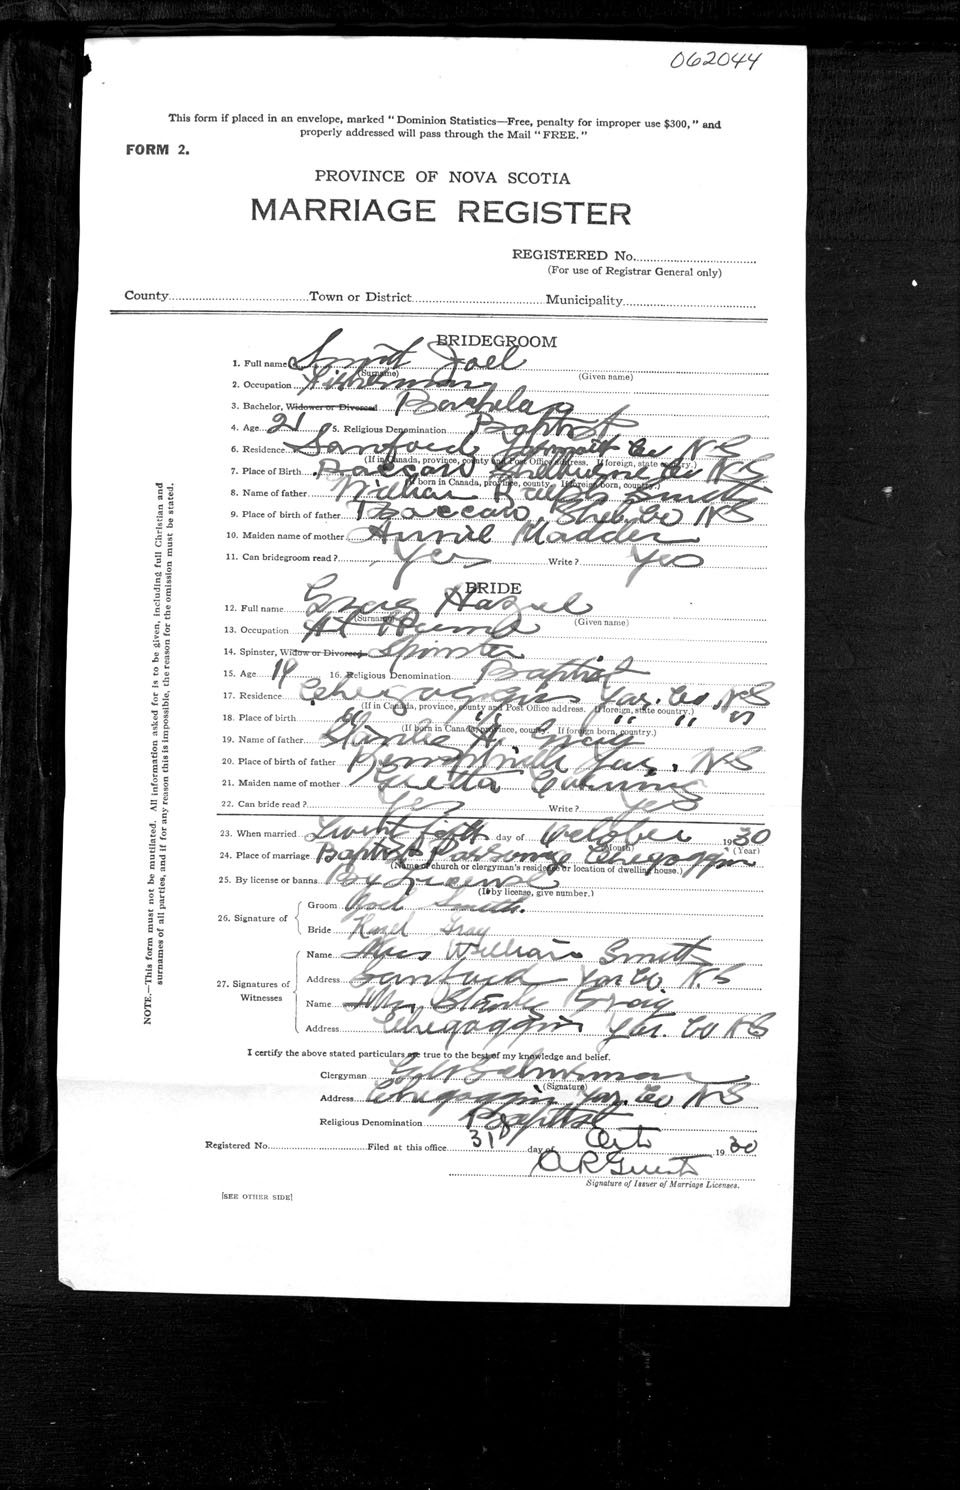 062044
This form if placed in an envelope, marked "Dominion Statistics—Free, penalty for improper use $300," and
properly addressed will pass through the Mail "FREE."
FORM 2.
PROVINCE OF NOVA SCOTIA
MARRIAGE REGISTER
REGISTERED No.
(For use of Registrar General only)
County Town or District Municipality
BRIDEGROOM
1. Full name Smith Joel
(Surname) (Given name)
2. Occupation Fisherman
3. Bachelor, Widower or Divorced Bachelor
4. Age 21 5. Religious Denomination Baptist
6. Residence Sanford Yarmouth Co NS
(If in Canada, province, county and Post Office address. If foreign, state country.)
7. Place of Birth Baccaro Shelburne Co NS
(If born in Canada, province, county. If foreign born, country.)
8. Name of father William Smith
9. Place of birth of father Baccaro, Shel. Co NS
10. Maiden name of mother Annie Madden
11. Can bridegroom read? Yes Write? Yes
BRIDE
12. Full name Hazel
(Surname) (Given name)
13. Occupation At Home
14. Spinster, Widow or Divorced Spinster
15. Age 19 16. Religious Denomination Baptist
17. Residence Chegoggin Yar. Co NS
(If in Canada, province, county and Post Office address. If foreign, state country.)
18. Place of birth " " " "
(If born in Canada, province, county. If foreign born, country.)
19. Name of father H.
20. Place of birth of father Yar. NS
21. Maiden name of mother Gretta
22. Can bride read? Yes Write? Yes
23. When married day of October 1930
(Month) (Year)
24. Place of marriage Baptist Parsonage Chegoggin
(Name of church or clergyman's residence or location of dwelling house.)
25. By license or banns By License
(If by license, give number.)
26. Signature of Groom Joel Smith.
Bride Hazel Gray
27. Signatures of Witnesses Name Mrs William Smith
Address Sanford Yar Co. N.S
Name Mrs Stanley
Address Chegoggin Yar. Co NS
I certify the above stated particulars are true to the best of my knowledge and belief.
Clergyman
(Signature)
Address Chegoggin Yar. Co NS
Religious Denomination Baptist
Registered No. Filed at this office 31 day of Oct 1930
Signature of Issuer of Marriage Licenses.
[SEE OTHER SIDE]
NOTE.—This form must not be mutilated. All information asked for is to be given, including full Christian and
surnames of all parties, and if for any reason this is impossible, the reason for the omission must be stated.